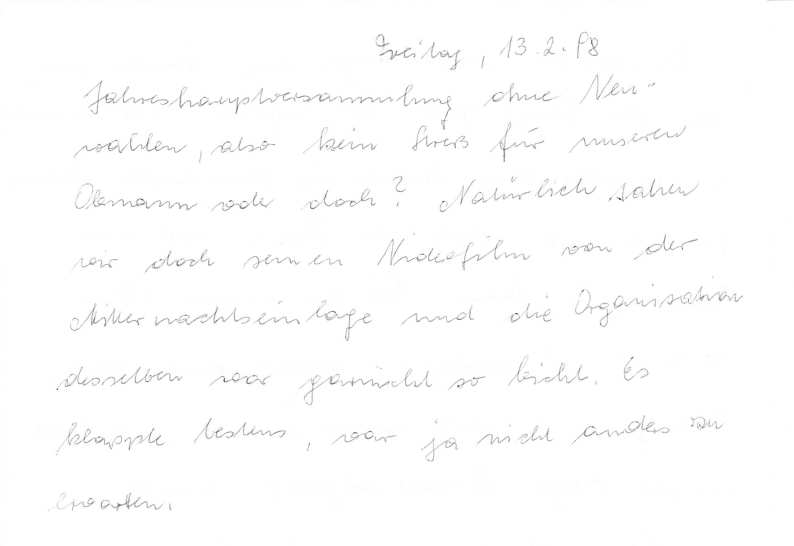 Freitag, 13.2.98
Jahreshauptversammlung ohne Neu-
wahlen, also kein Streß für unseren
Obmann oder doch? Natürlich sahen
wir doch seinen Videofilm von der
Mitternachtseinlage und die Organisation
desselben war garnicht so leicht. Es
klappte bestens, war ja nicht anders zu
erwarten.